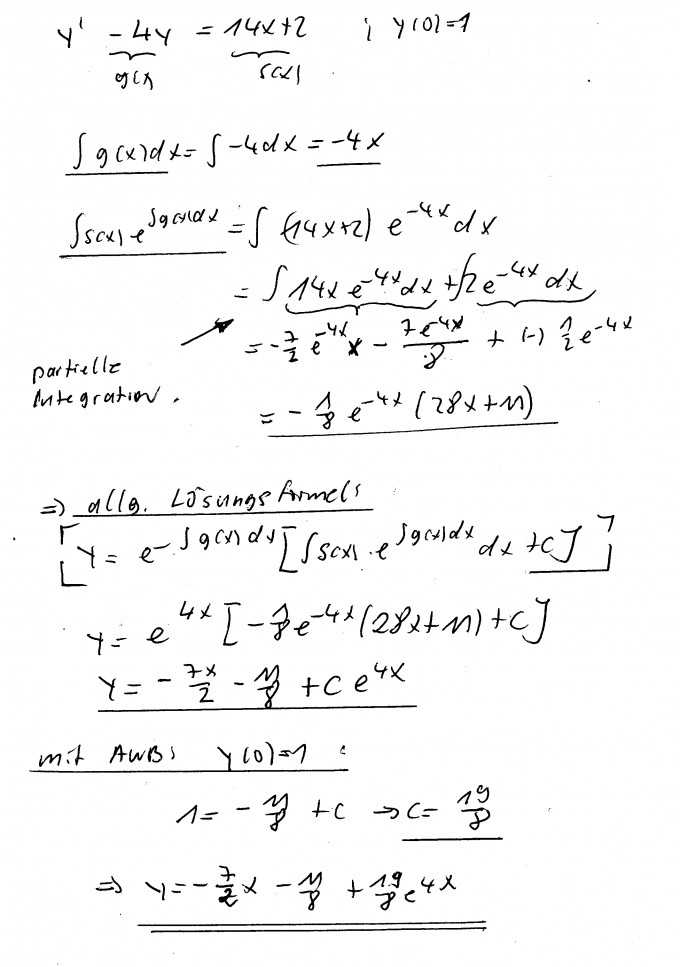 y' - 4y = 14x+2 ; y(0)=1
g(x) s(x)
∫ g(x)dx = ∫ -4dx = -4x
∫ s(x) e^{∫g(x)dx} = ∫ (14x+2) e^{-4x} dx
= ∫ 14x e^{-4x} dx + ∫ 2 e^{-4x} dx
= -7/2 e^{-4x} x - 7e^{-4x}/8 + (-) 1/2 e^{-4x}
partielle
Integration.
= - 1/8 e^{-4x} (28x+11)
=> allg. Lösungsformel:
[ y = e^{-∫g(x)dx} [ ∫ s(x) · e^{∫g(x)dx} dx + C ] ]
y = e^{4x} [ -1/8 e^{-4x} (28x+11) + C ]
y = - 7x/2 - 11/8 + C e^{4x}
mit AWB: y(0)=1 :
1 = - 11/8 + C → C = 19/8
=> y = - 7/2 x - 11/8 + 19/8 e^{4x}